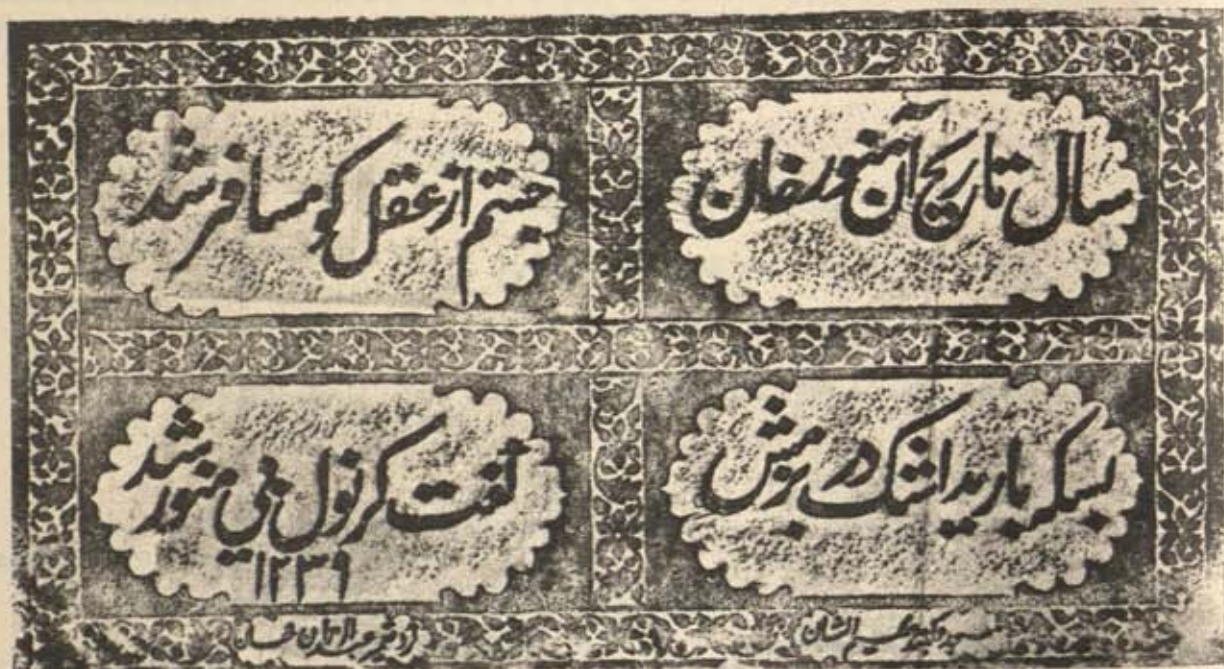 سال تاریخ آن منور خان
جستم از عقل کو مسافر شد
بسکه بارید اشک در بزمش
گفت کرنول بی منور شد
۱۲۳۹
الشان
خان